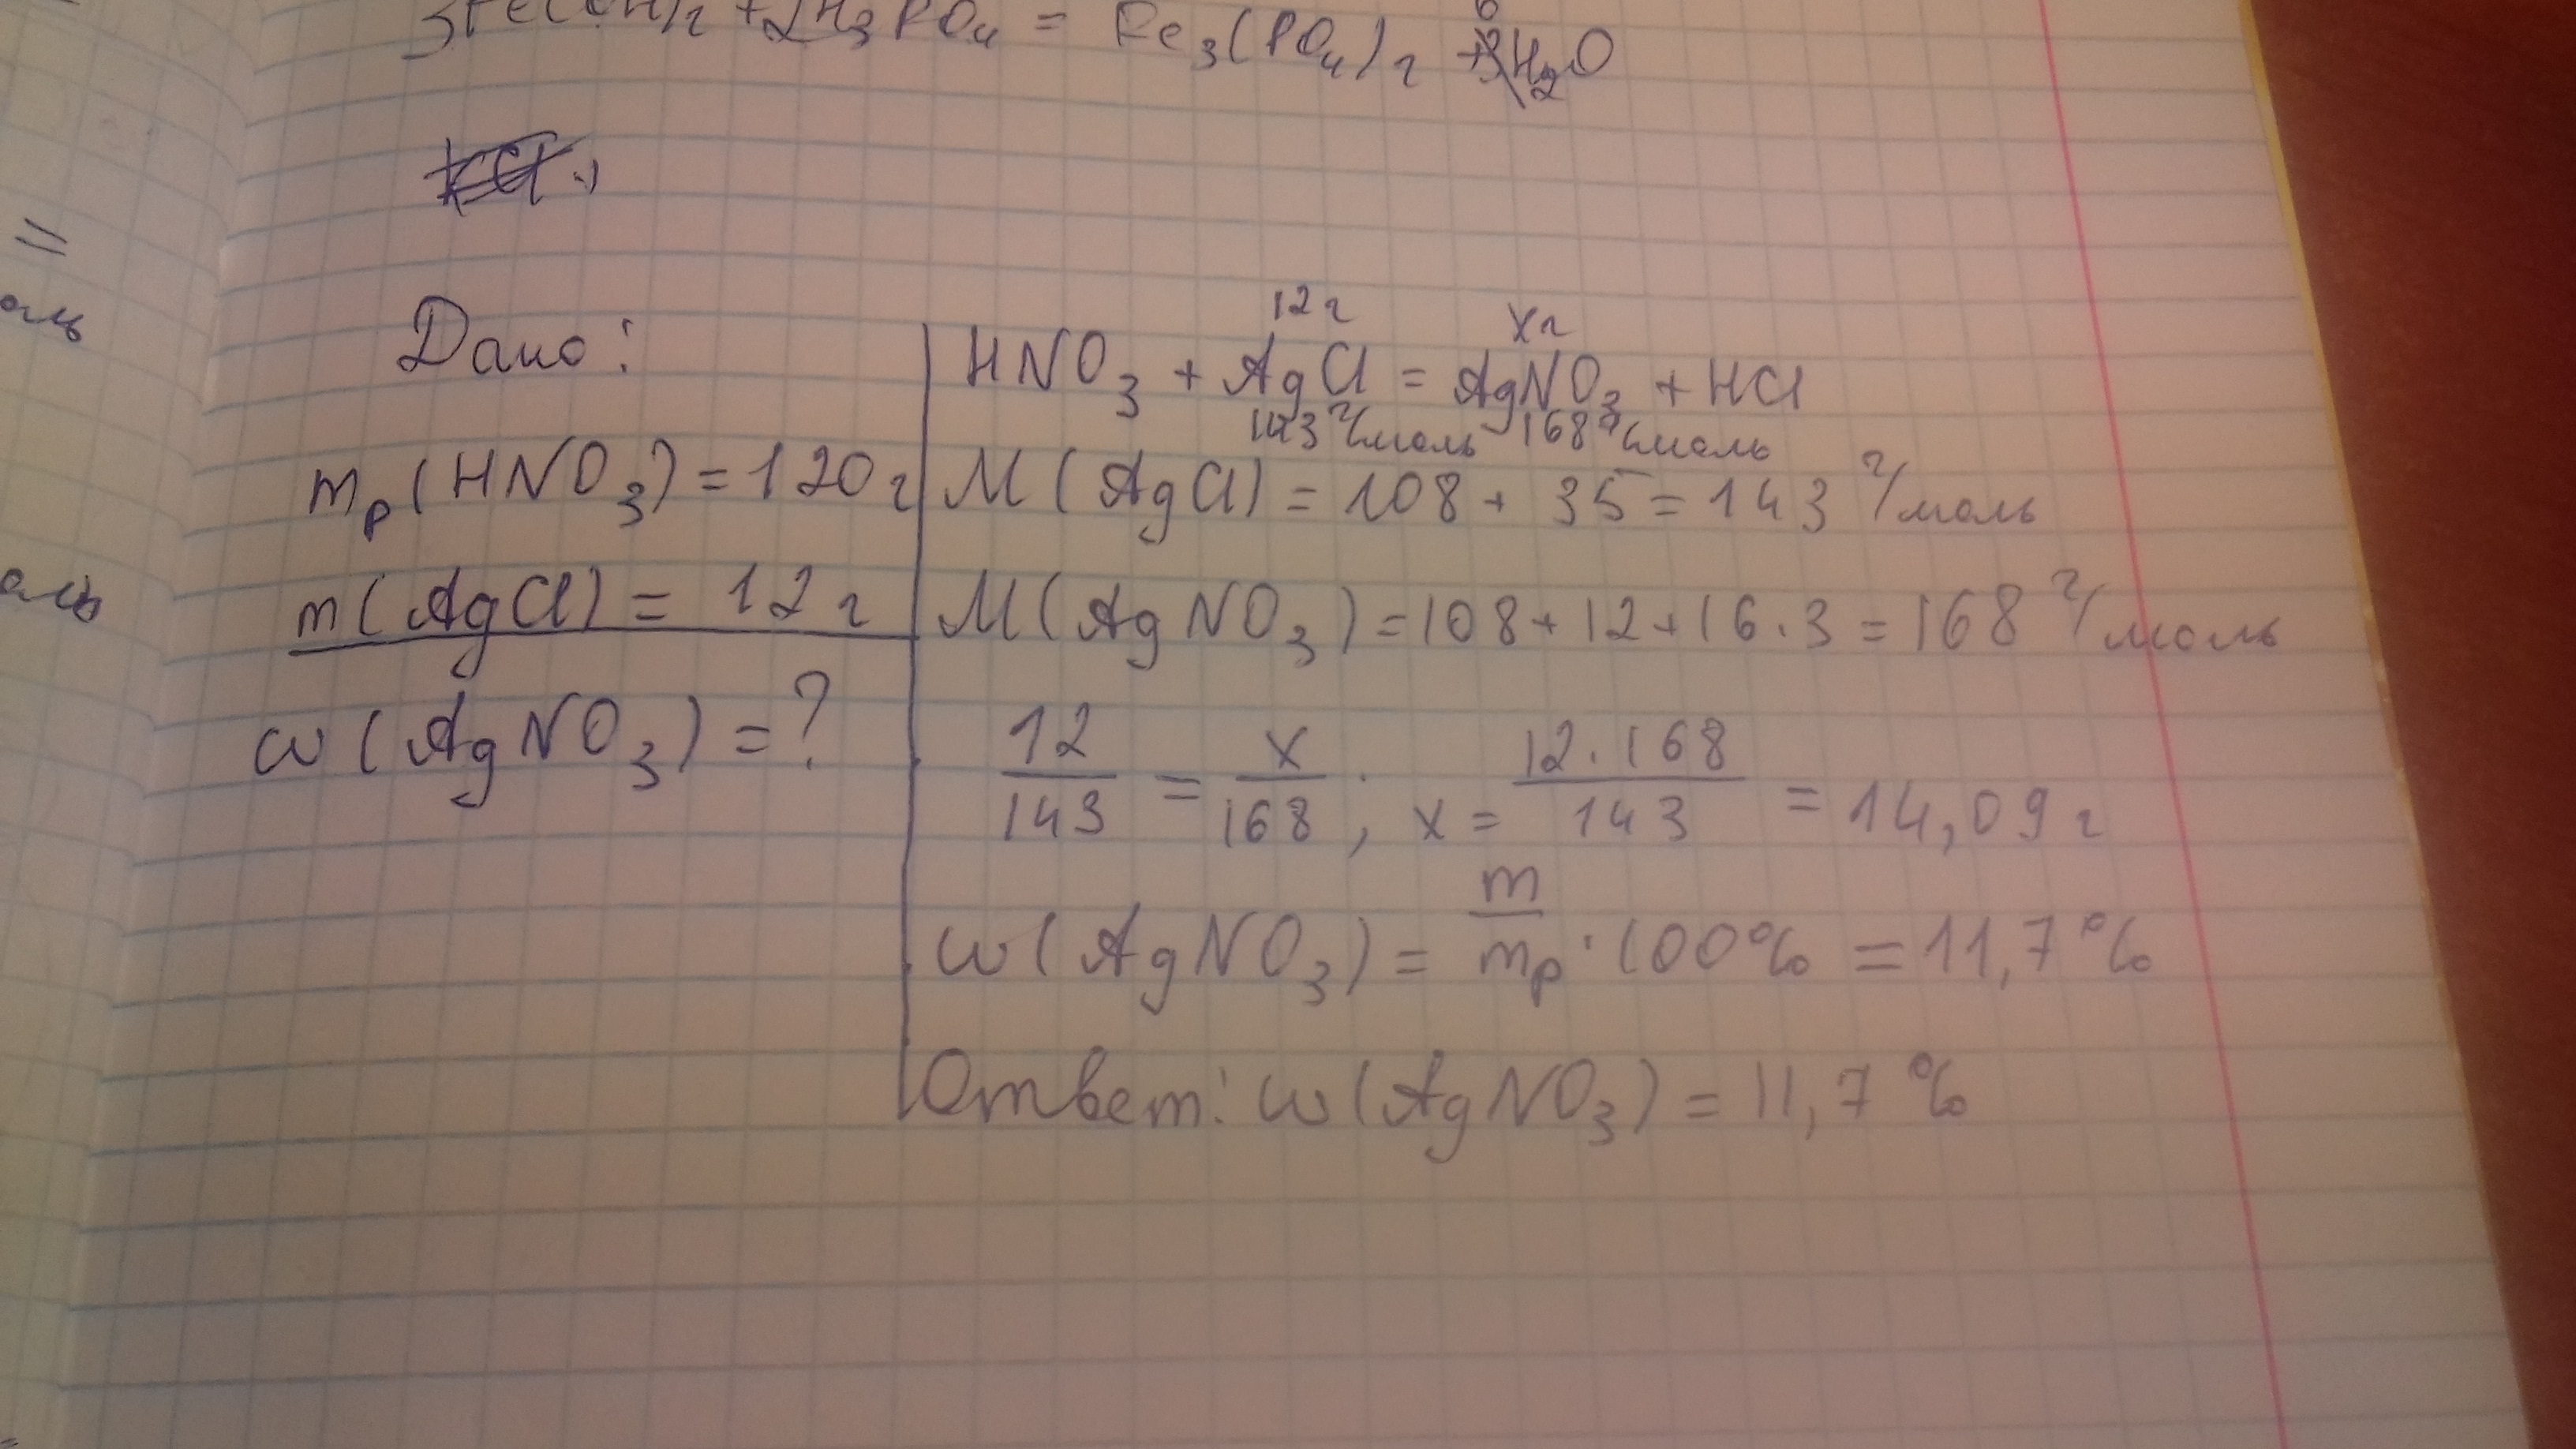 3Fe(OH)2 + 2H3PO4 = Fe3(PO4)2 + 6H2O
KCl
=
оль
оль
Дано:
mр(HNO3) = 120 г
m(AgCl) = 12 г
w(AgNO3) = ?
12 г xг
HNO3 + AgCl = AgNO3 + HCl
143 г/моль 168 г/моль
M(AgCl) = 108 + 35 = 143 г/моль
M(AgNO3) = 108 + 12 + 16 · 3 = 168 г/моль
12/143 = x/168; x = 12 · 168/143 = 14,09 г
w(AgNO3) = m/mр · 100% = 11,7 %
Ответ: w(AgNO3) = 11,7 %